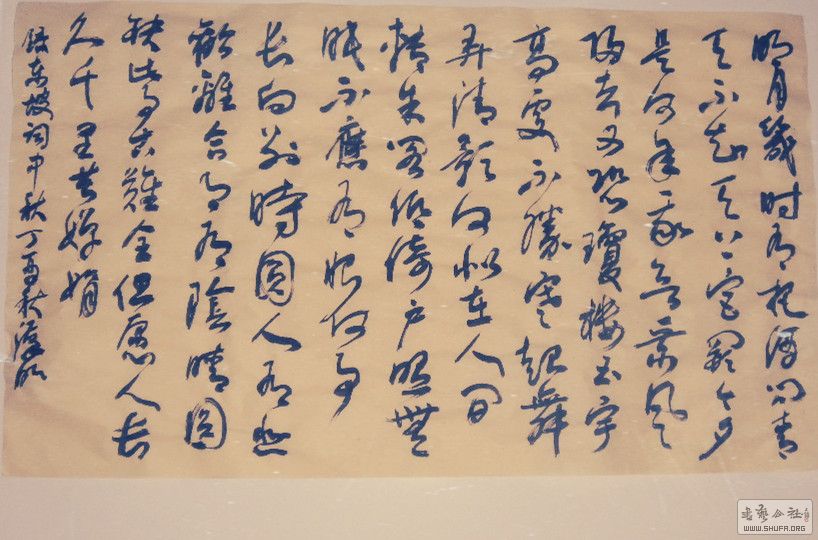 明月幾时有把酒问青
天不知天上宫阙今夕
是何年我欲乘风
归去又恐瓊楼玉宇
高处不勝寒起舞
弄清影何似在人间
轉朱阁低绮户照無
眠不應有恨何事
长向别時圆人有悲
歡離合月有陰晴圆
缺此事古難全但愿人长
久千里共婵娟
録东坡词中秋丁酉秋
WWW.SHUFA.ORG